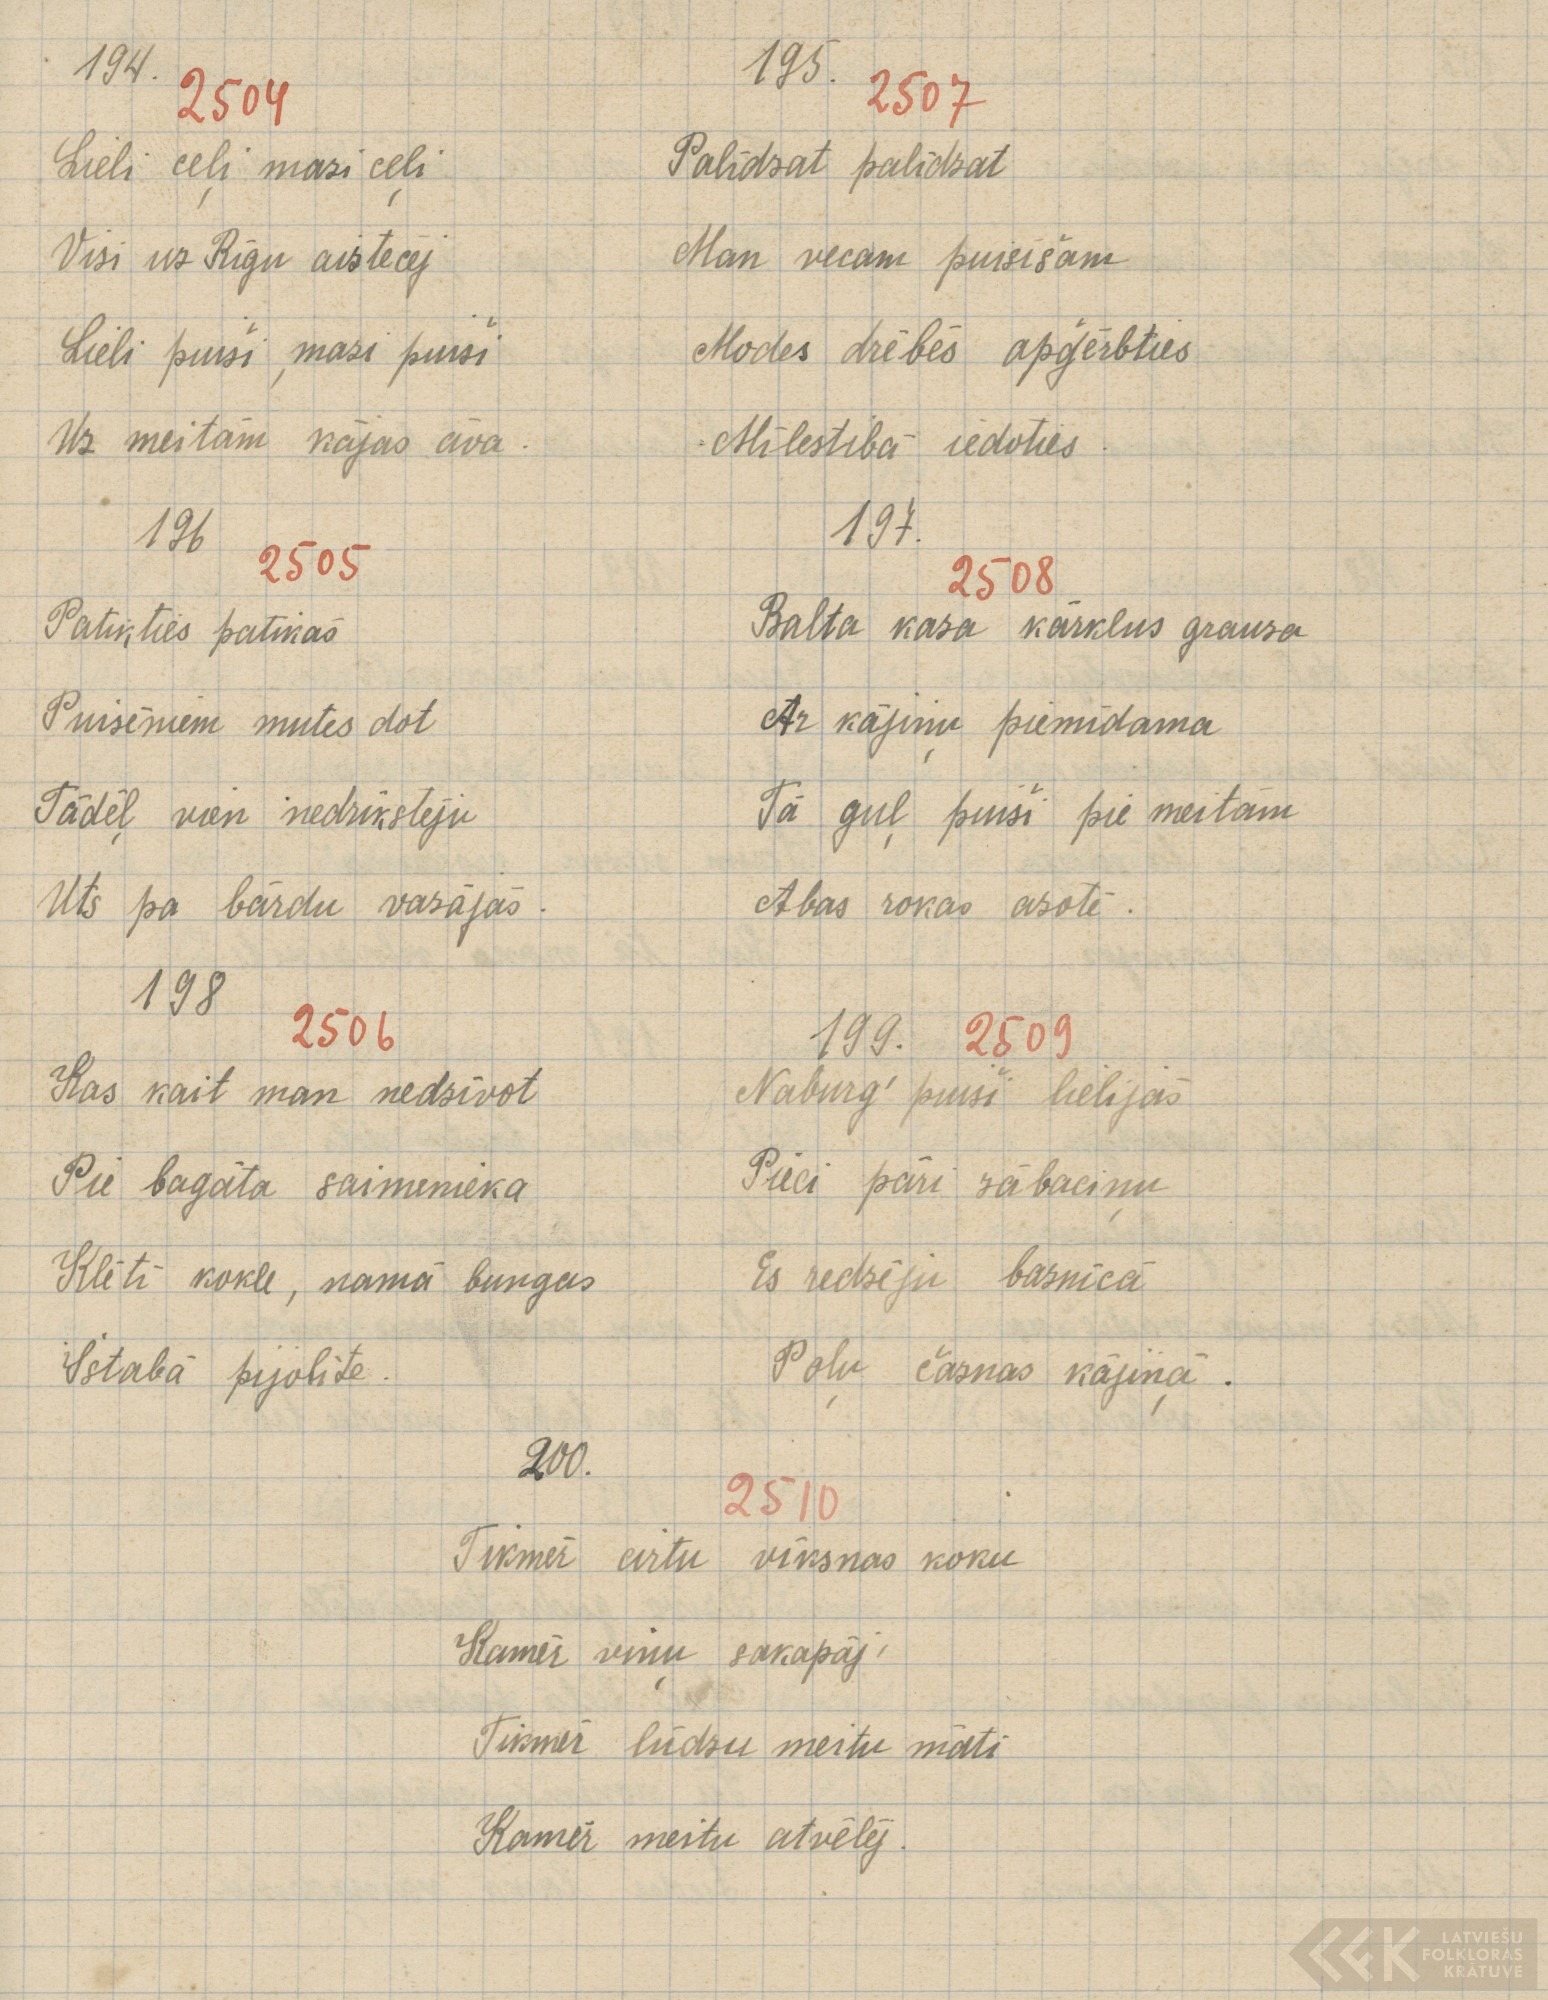 194.
2504
Lieli ceļi mazi ceļi
Visi uz Rīgu aiztecēj
Lieli puiši, mazi puiši
Uz meitām kājas āva.
195.
2507
Palīdzat palīdzat
Man vecam puisišam
Modes drēbēs apģērbties
Mīlestībā iedoties.
196
2505
Patikties patikās
Puisēniem mutes dot
Tādēļ vien nedrīkstēju
Uts pa bārdu vazājās.
197.
2508
Balta kaza kārklus grauza
Ar kājiņu piemīdama
Tā guļ puiši pie meitām
Abas rokas azotē.
198
2506
Kas kait man nedzīvot
Pie bagāta saimenieka
Klētī kokle, namā bungas
Istabā pijolīte.
199. 2509
Naburg' puiši lielījās
Pieci pāri zābaciņu
Es redzēju baznīcā
Poļu čāznas kājiņā.
200.
2510
Tikmēr cirtu vīksnas koku
Kamēr viņu sakapāj'
Tikmēr lūdzu meitu māti
Kamēr meitu atvēlēj.
LATVIEŠU
FOLKLORAS
KRĀTUVE